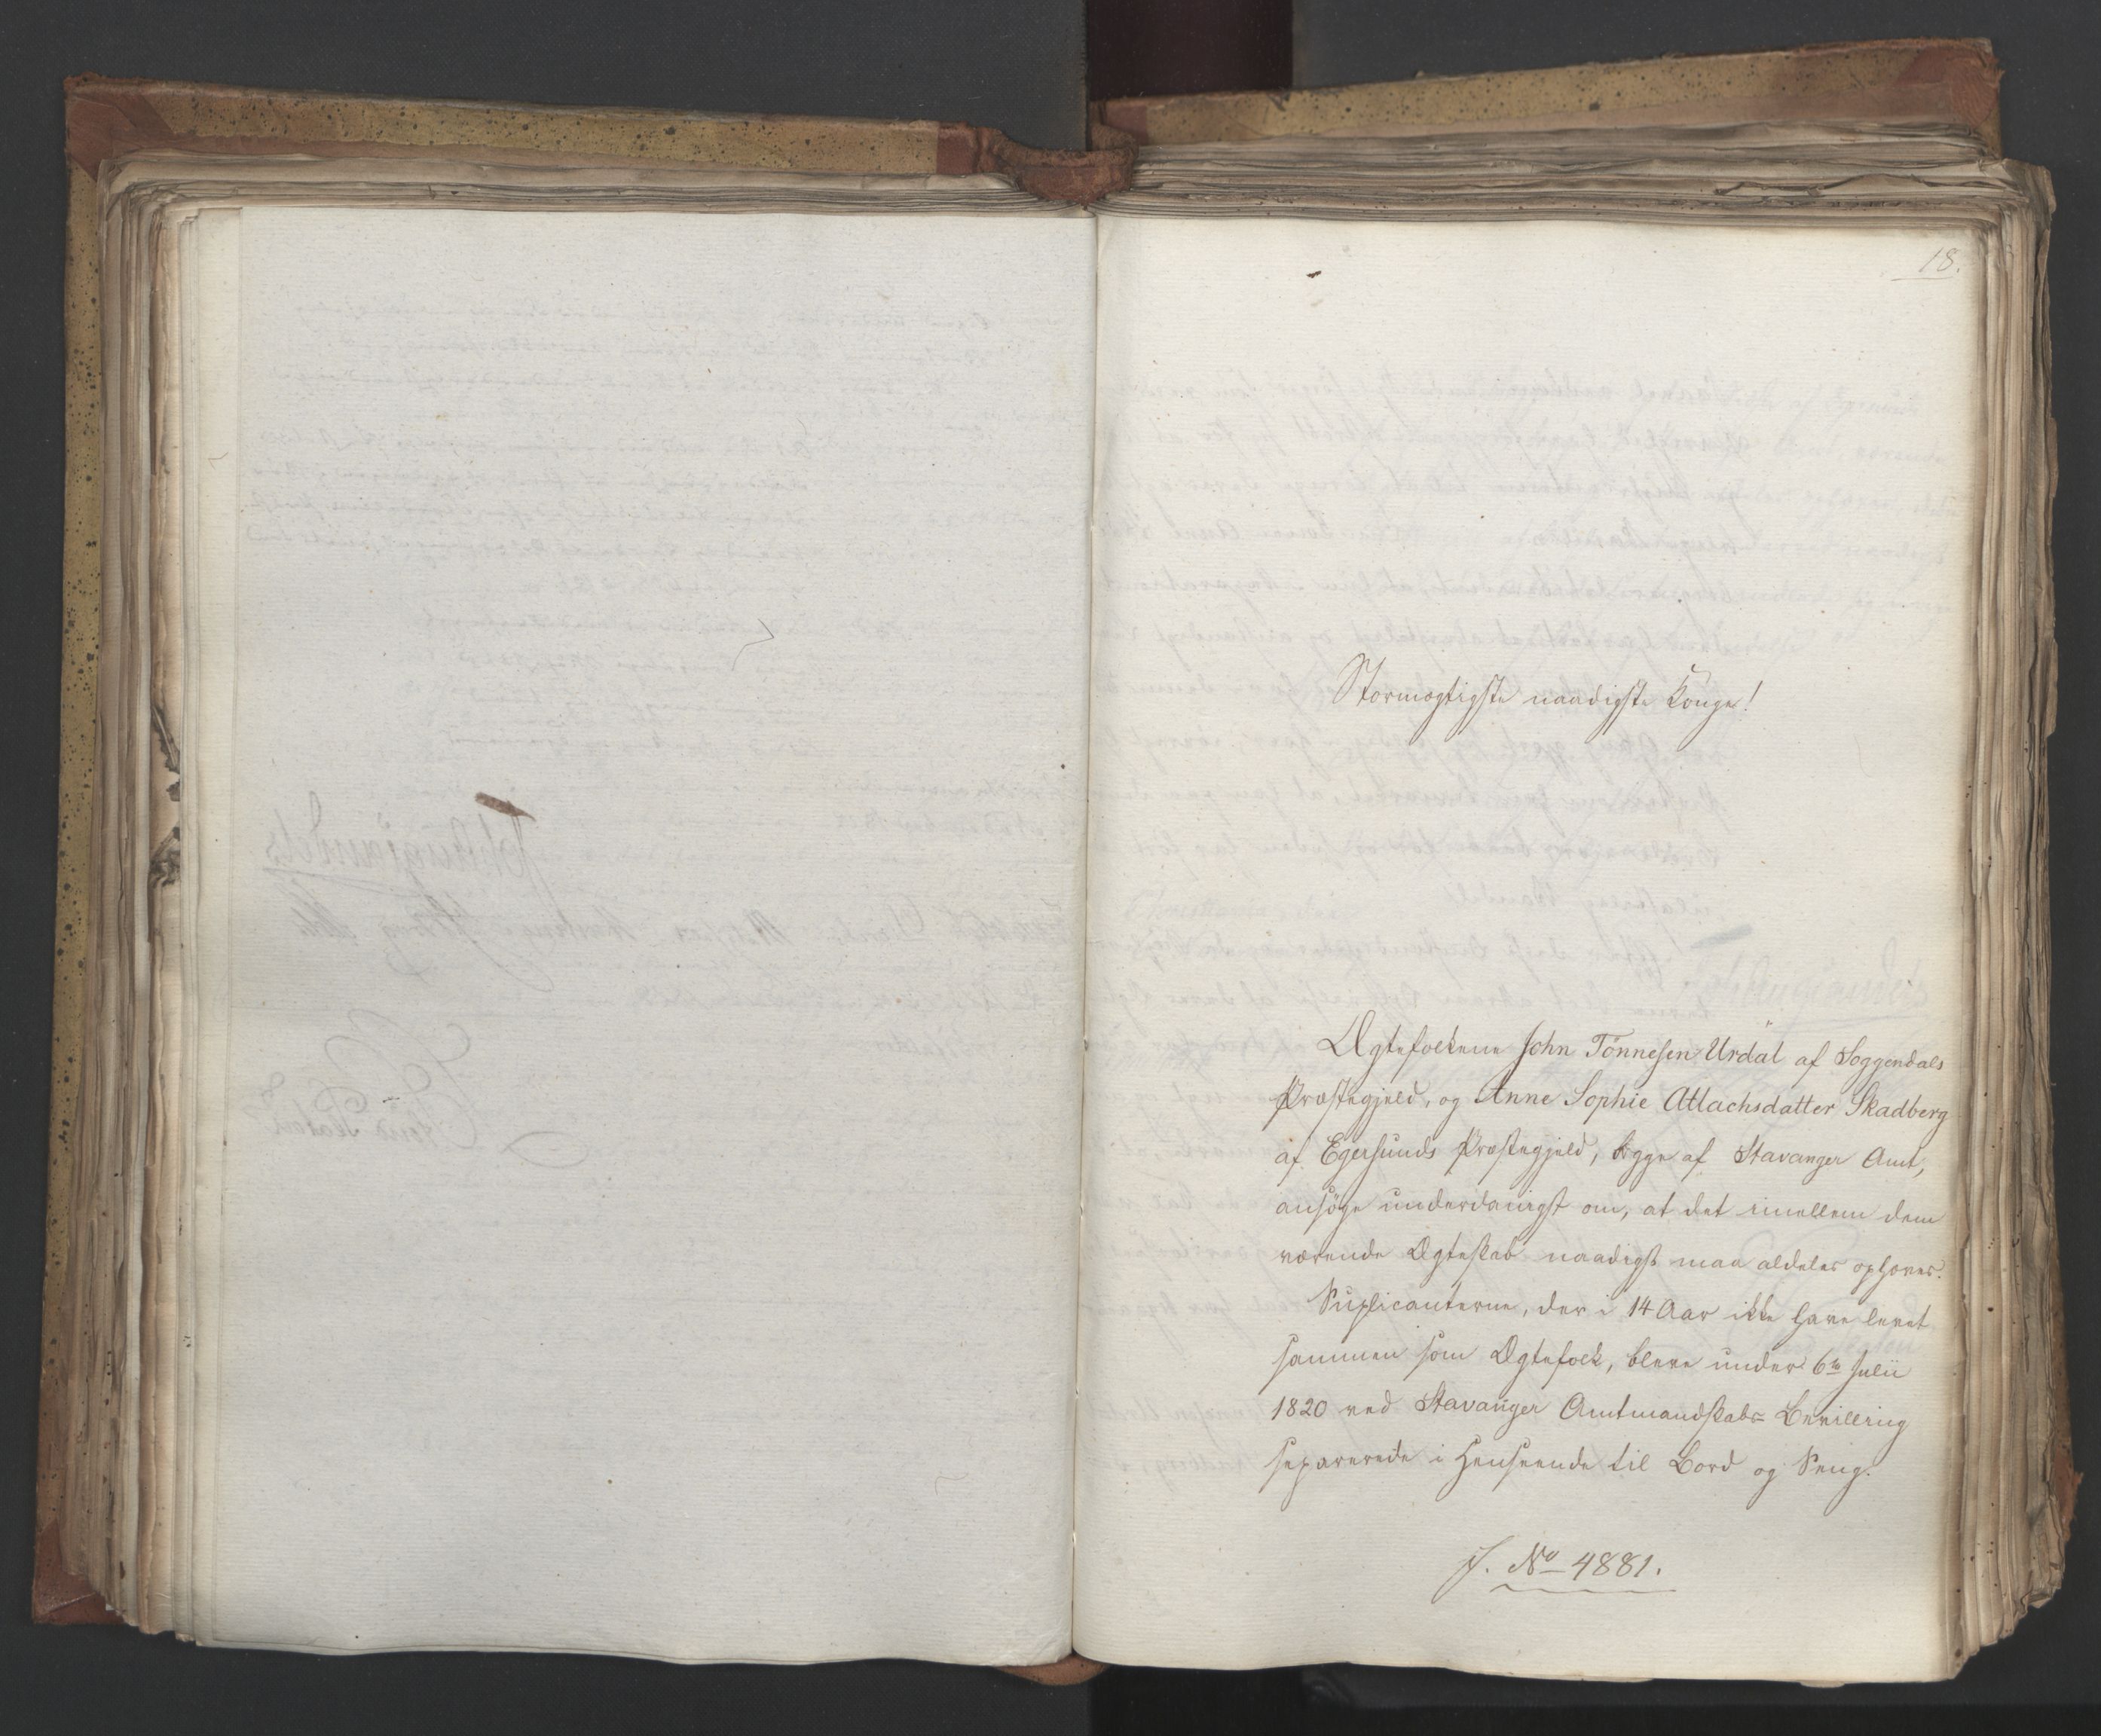 18.
Stormægtigste naadigste Konge!
Ægtefolkene John Tönnesen Urdal af Soggendals
Præstegjeld, og Anne Sophie Atlachsdatter Skadberg
af Egersunds Præstegjeld, begge af Stavanger Amt,
ansøge underdanigst om, at det imellem dem
værende Ægteskab naadigst maa aldeles ophæves.
Suplicanterne, der i 14 Aar ikke have levet
sammen som Ægtefolk, bleve under 6te Julii
1820 ved Stavanger Amtmandskabs Bevilling
separerede i Henseende til Bord og Seng.
J. No 4881.